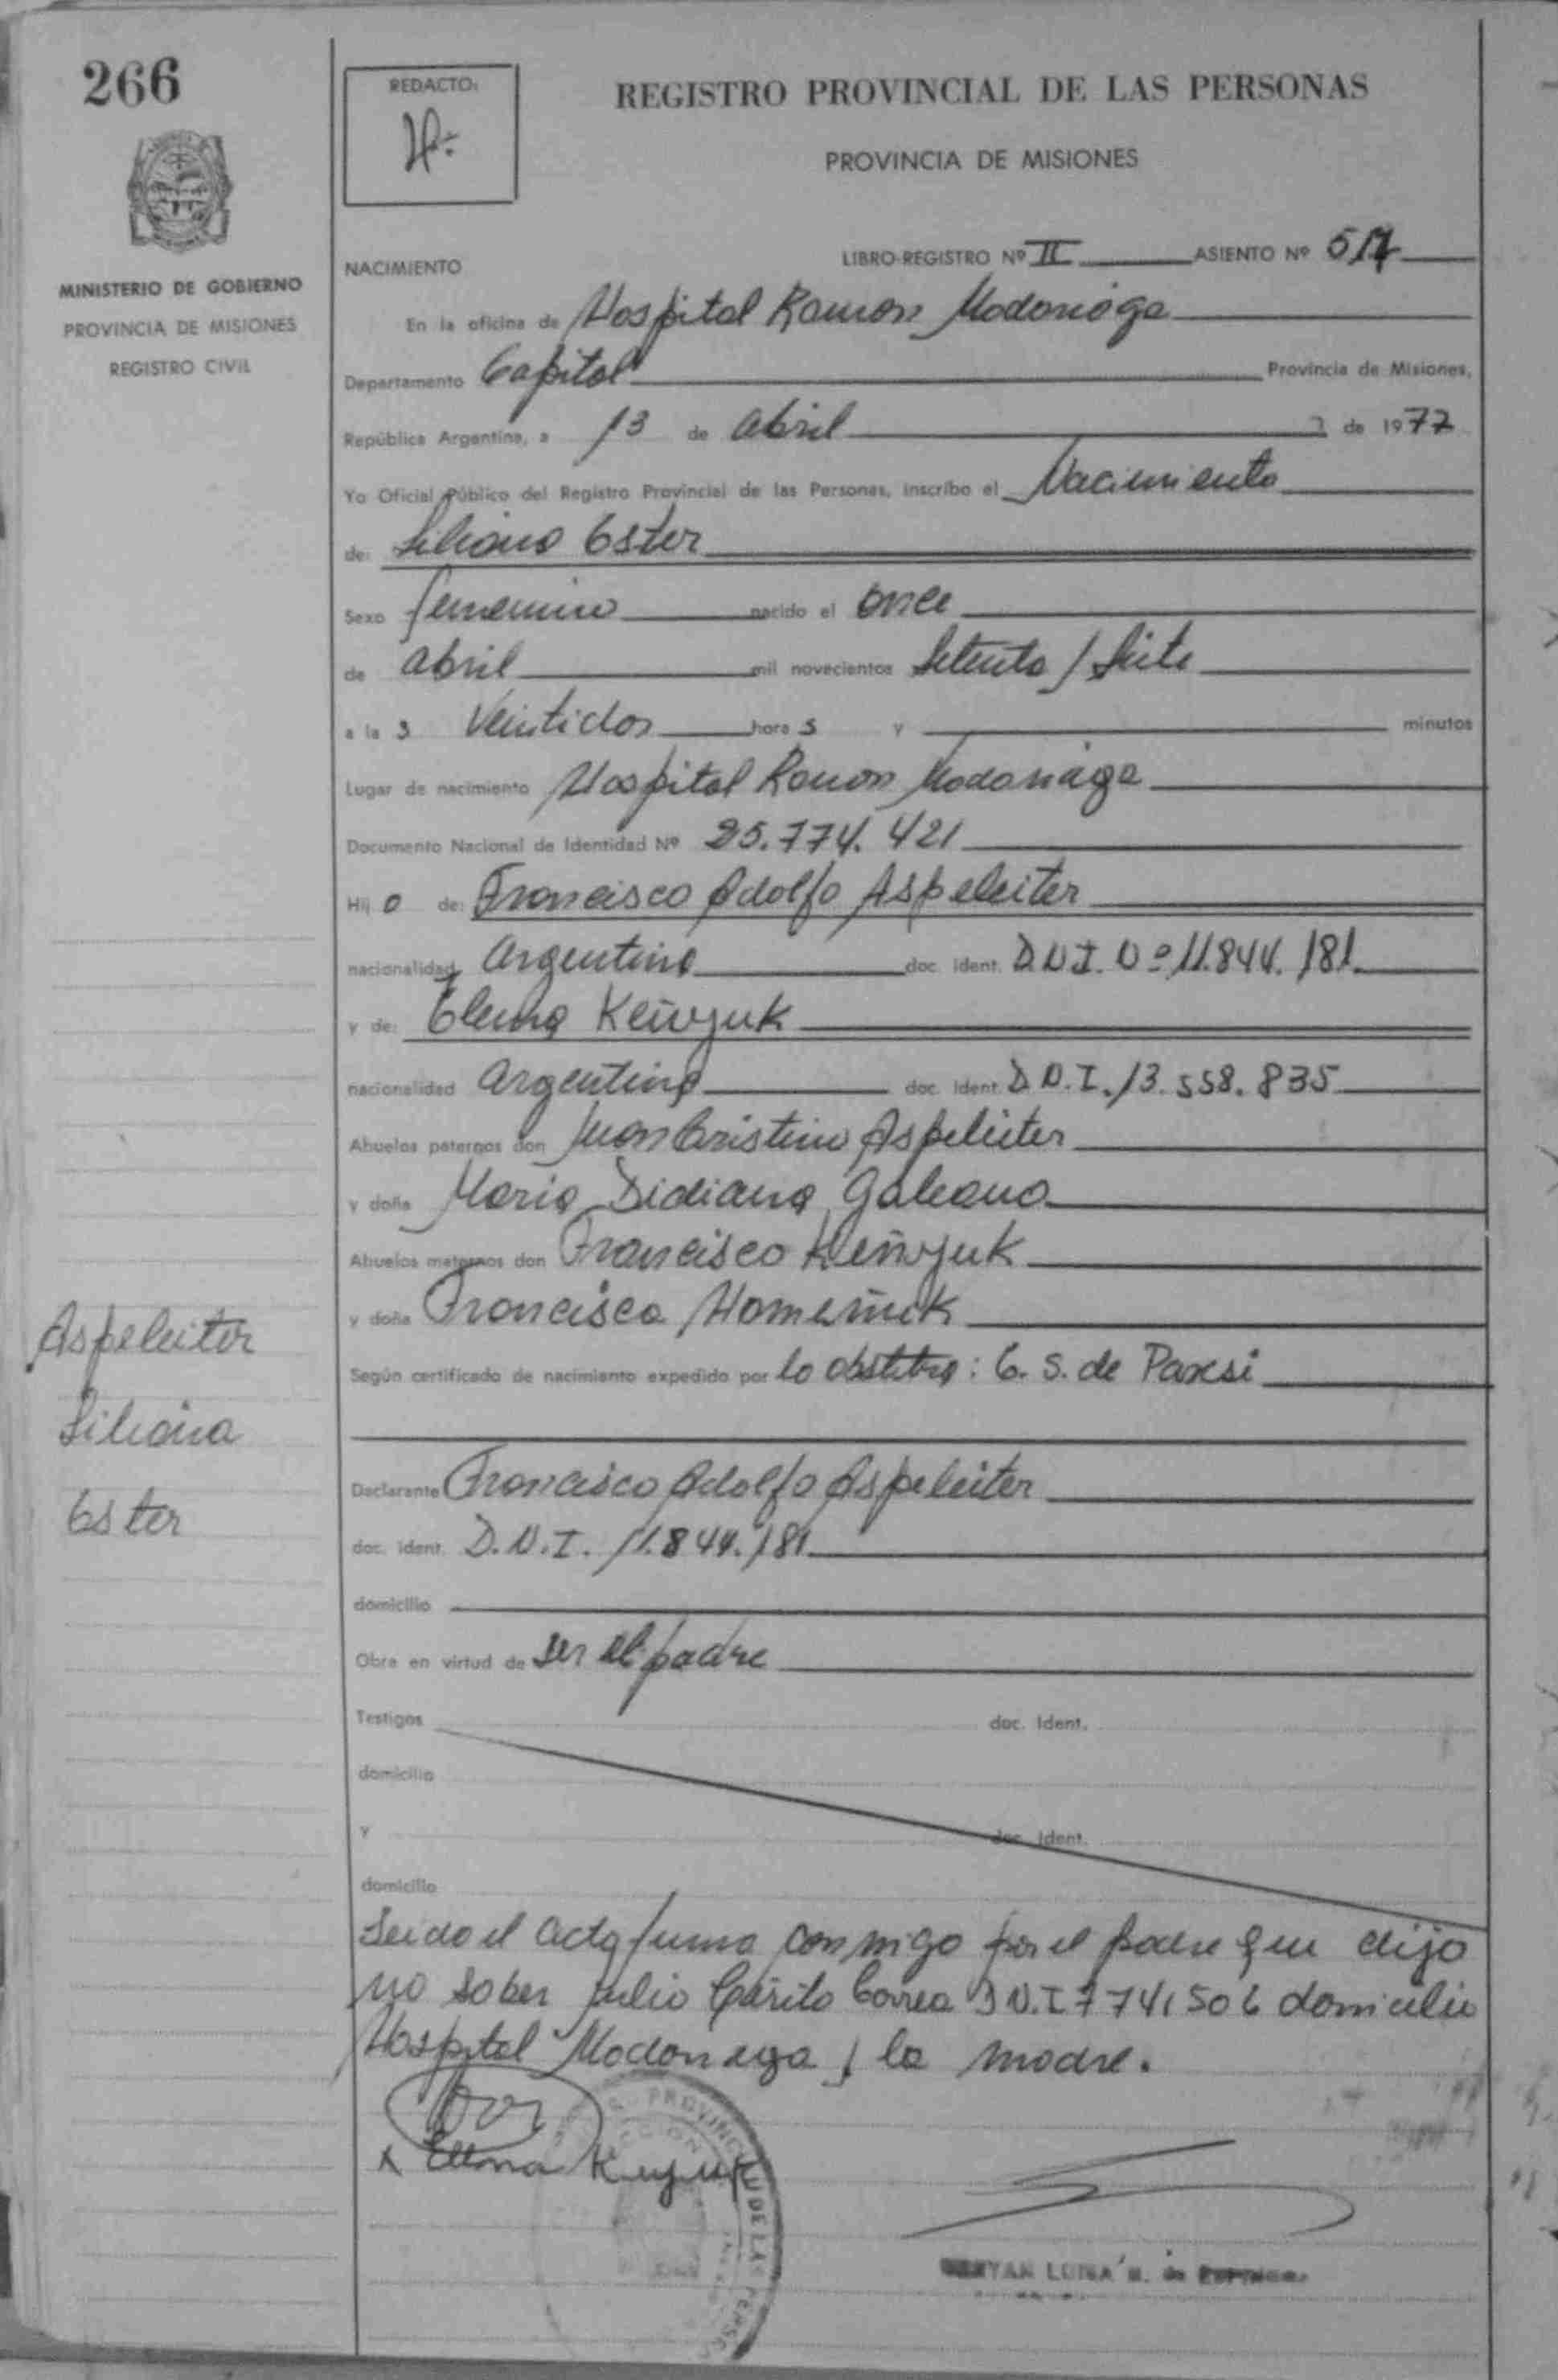 266
REDACTO:
REGISTRO PROVINCIAL DE LAS PERSONAS
PROVINCIA DE MISIONES
MINISTERIO DE GOBIERNO
PROVINCIA DE MISIONES
REGISTRO CIVIL
NACIMIENTO LIBRO-REGISTRO Nº II ASIENTO Nº 517
En la oficina de Hospital Ramon Madariaga
Departamento Capital Provincia de Misiones,
República Argentina, a 13 de abril de 1977
Yo Oficial Público del Registro Provincial de las Personas, inscribo el Nacimiento
de: Liliana Ester
Sexo femenino nacido el once
de abril mil novecientos Setenta / Siete
a la s Veintidos hora s y minutos
Lugar de nacimiento Hospital Ramon Madariaga
Documento Nacional de Identidad Nº 25.774.421
Hij a de: Francisco Adolfo Aspeleiter
nacionalidad argentina doc. Ident. D.N.I. Nº 11.844.181
y de: Elena Keñyuk
nacionalidad argentina doc. Ident. D.N.I. 13.558.835
Abuelos paternos don Juan Cristino Aspeleiter
y doña Maria Didiana Galeano
Abuelos maternos don Francisco Keñyuk
y doña Francisca Homeñuk
Según certificado de nacimiento expedido por la obstetra: E. S. de
Aspeleiter
Liliana
Ester
Declarante Francisco Adolfo Aspeleiter
doc. Ident. D.N.I. 11.844.181
domicilio
Obra en virtud de ser el padre
Testigos doc. Ident.
domicilio
y doc. Ident.
domicilio
Leida el acta firma conmigo por el padre que dijo
no saber Julio Correa D.N.I. 7741506 domicilio
Hospital Madariaga y la madre.
Elena